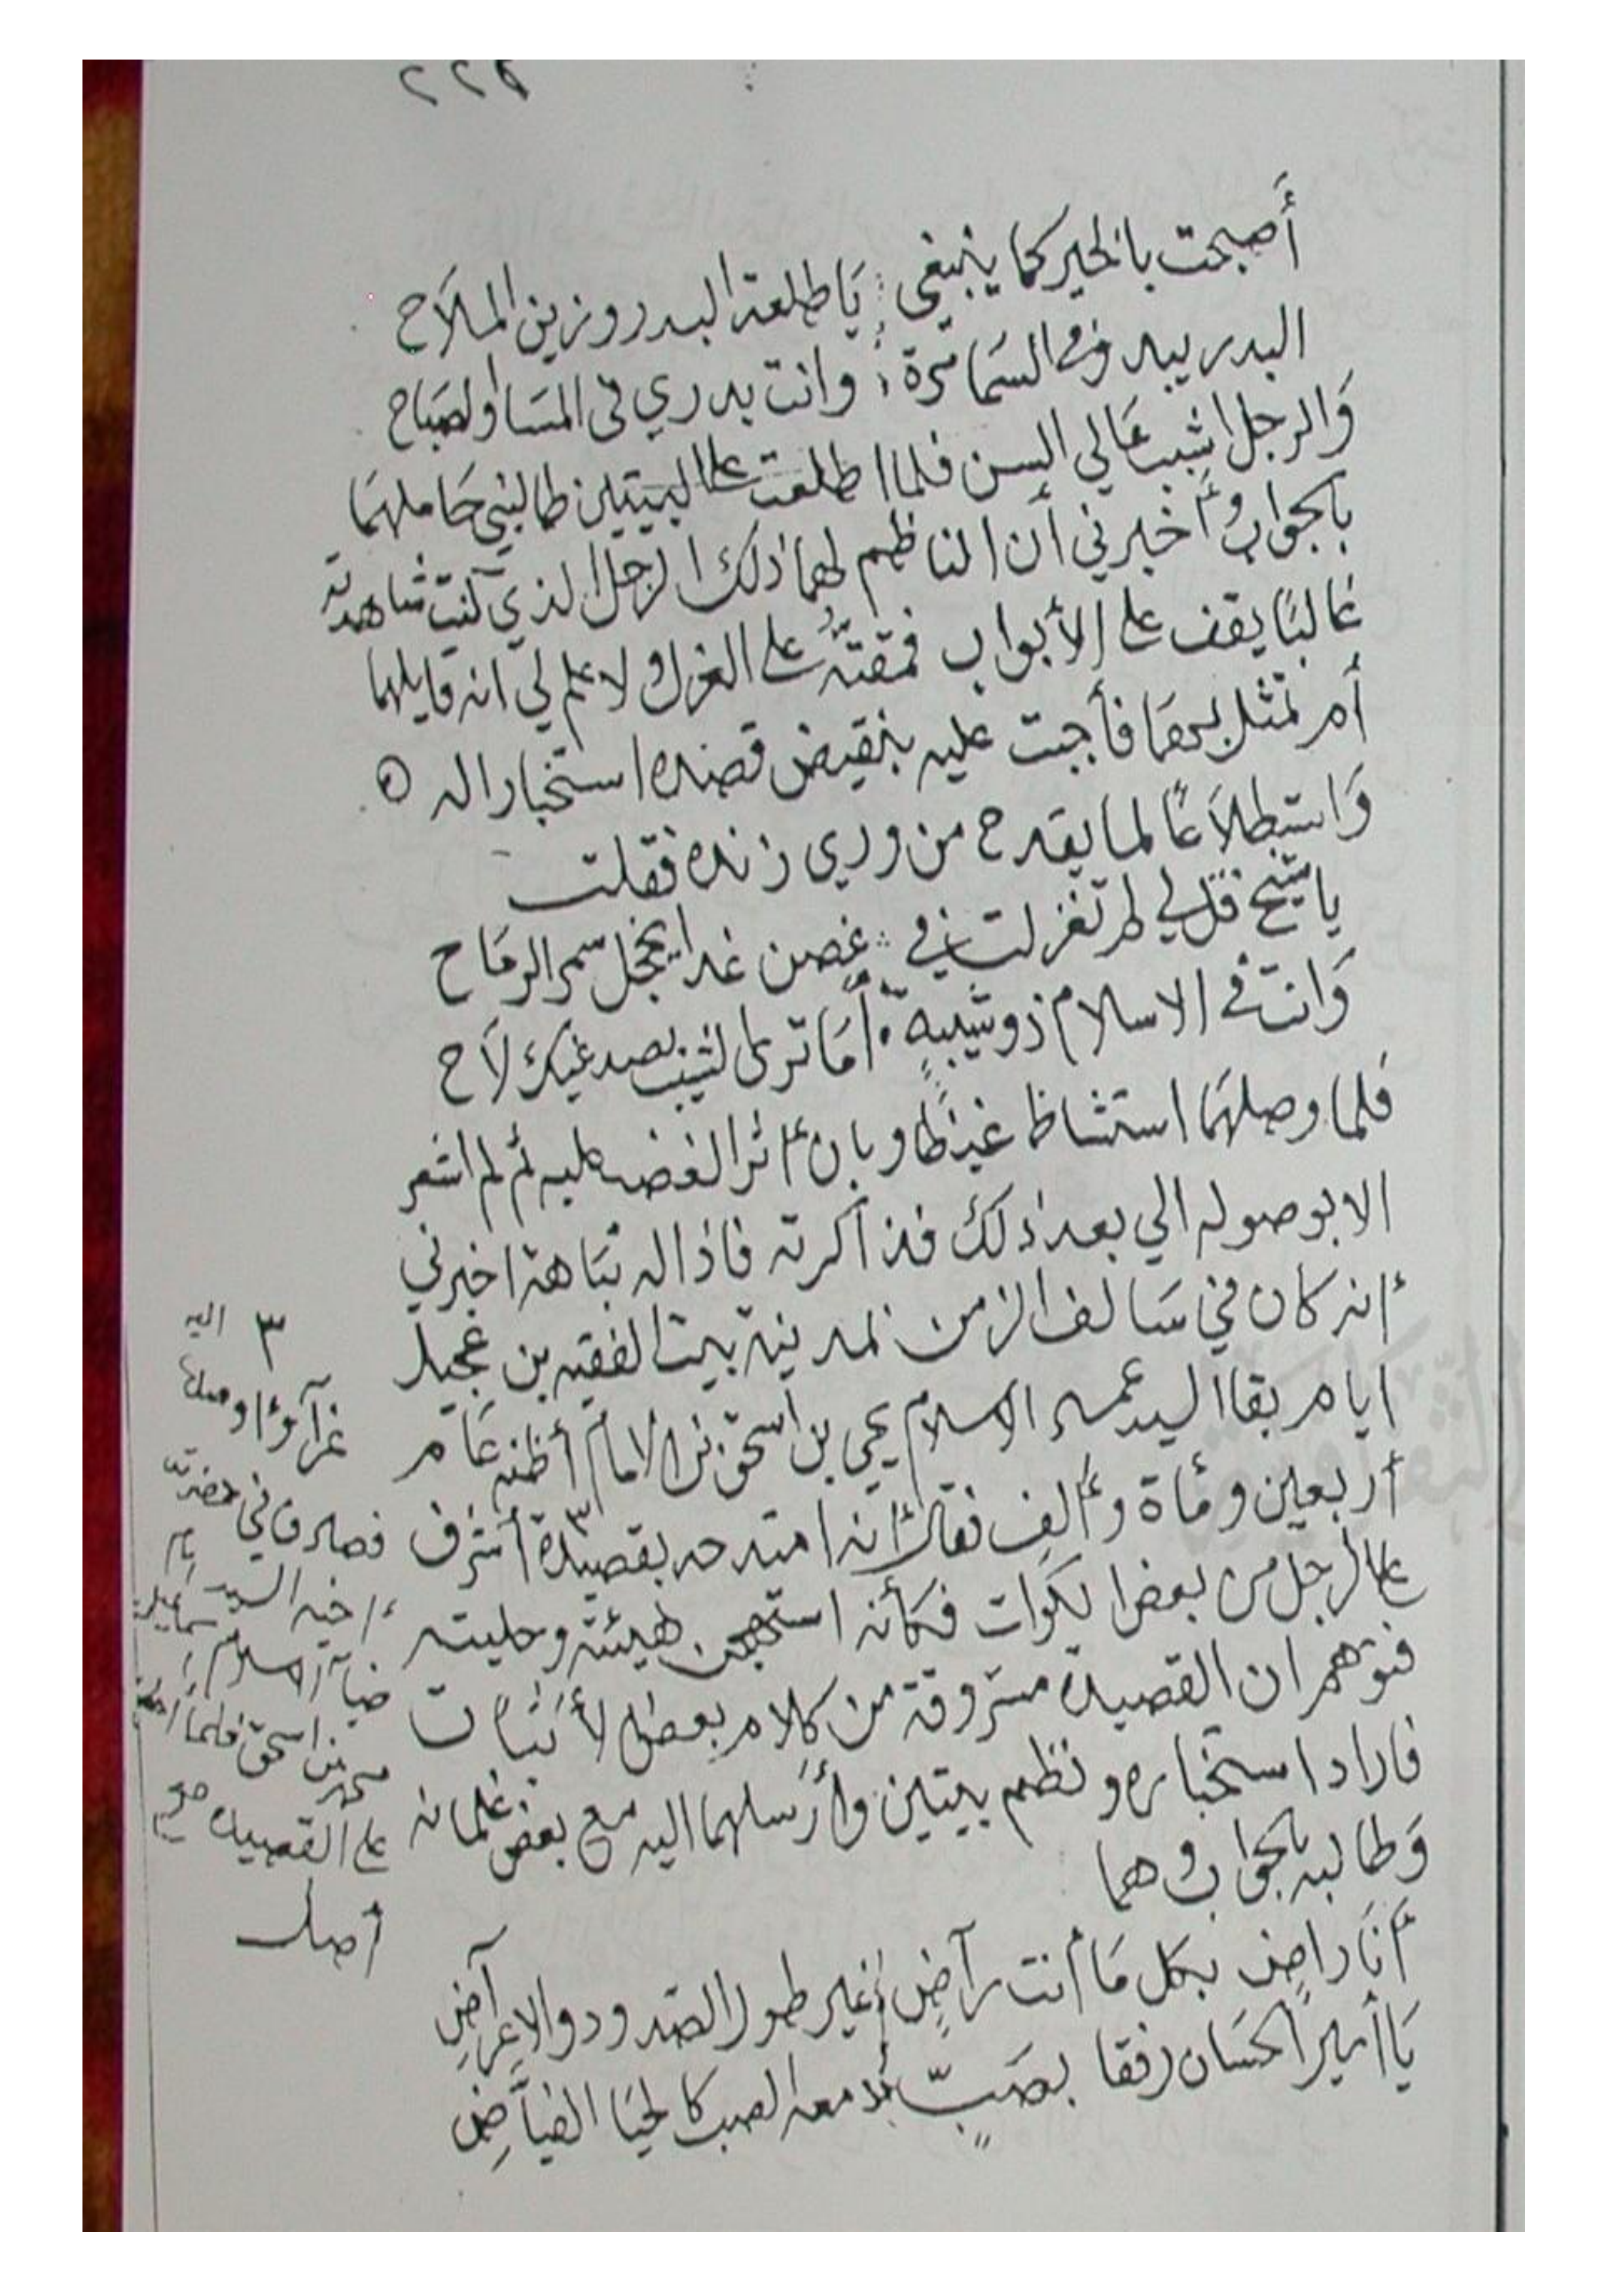 ٢٢٥
أَصبحت بالخير كما ينبغي ؛ يَا طلعة البدر وزين الملاَح
البدر يبدو في السَما مَرة ؛ وانت بدري في المسَا والصبَاح
وَالرجل اشيب عَالي السن فلما اطلعت على البيتين طالبني حَاملهمَا
بالجواب وأخبرني أن الناظم لهما ذلك الرجل الذي كنت شاهدته
غالبًا يقف على الأبواب فمقتّهُ على الغزل ولا علم لي انه قايلهما
أم تمثل بهمَا فأجبت عليه بنقيض قصده استخبارا له ٥
وَاستطلاَعًا لما يقدح من وري زنده فقلت
يا شيخ قل لي لم تغزلت في ؛ غصن غدا يخجل سمر الرمَاح
وَانت في الاسلام ذو شيبةٍ ؛ أمَا ترى الشيب بصدغيك لاَح
فلما وصلهمَا استشاظ غيظًا وبان أثر الغضب عليه ثم لم اشعر
الا بوصوله الي بعد ذلك فذاكرته فاذا له نبَاهة اخبرني
أنه كان في سَالف الزمن بمدينة بيت الفقيه بن عجيل
ايام بقا السيد عماد الاسلام يحيى بن اسحق بن الامام أظنه عَام
أربعين ومأة وألف فقال أنه امتدحه بقصيدة ٣ أشرف
على الرجل من بعض الكوات فكأنه استهجن هيئته وحليته
فتوهم ان القصيدة مسَروقة من كلام بعض الأثبات
فاراد استخباره ونظم بيتين وأرَسلهما اليه مع بعض غلمانه
وَطالبه بالجواب وهما
أنَا راضٍ بكل مَا أنت رآضٍ ؛ غير طول الصدود والاعرآضِ
يَا أمير الحسَان رفقا بصَبٍّ ؛ أدمعه الصب كالحيَا الفيَّاضِ
٣ اليه
غرآؤ اوصلها
فصادف في حضرته
أخيه السيد
ضيآ الاسلام إسماعيل
بن اسحق فلما
على القصيده صح
أصل